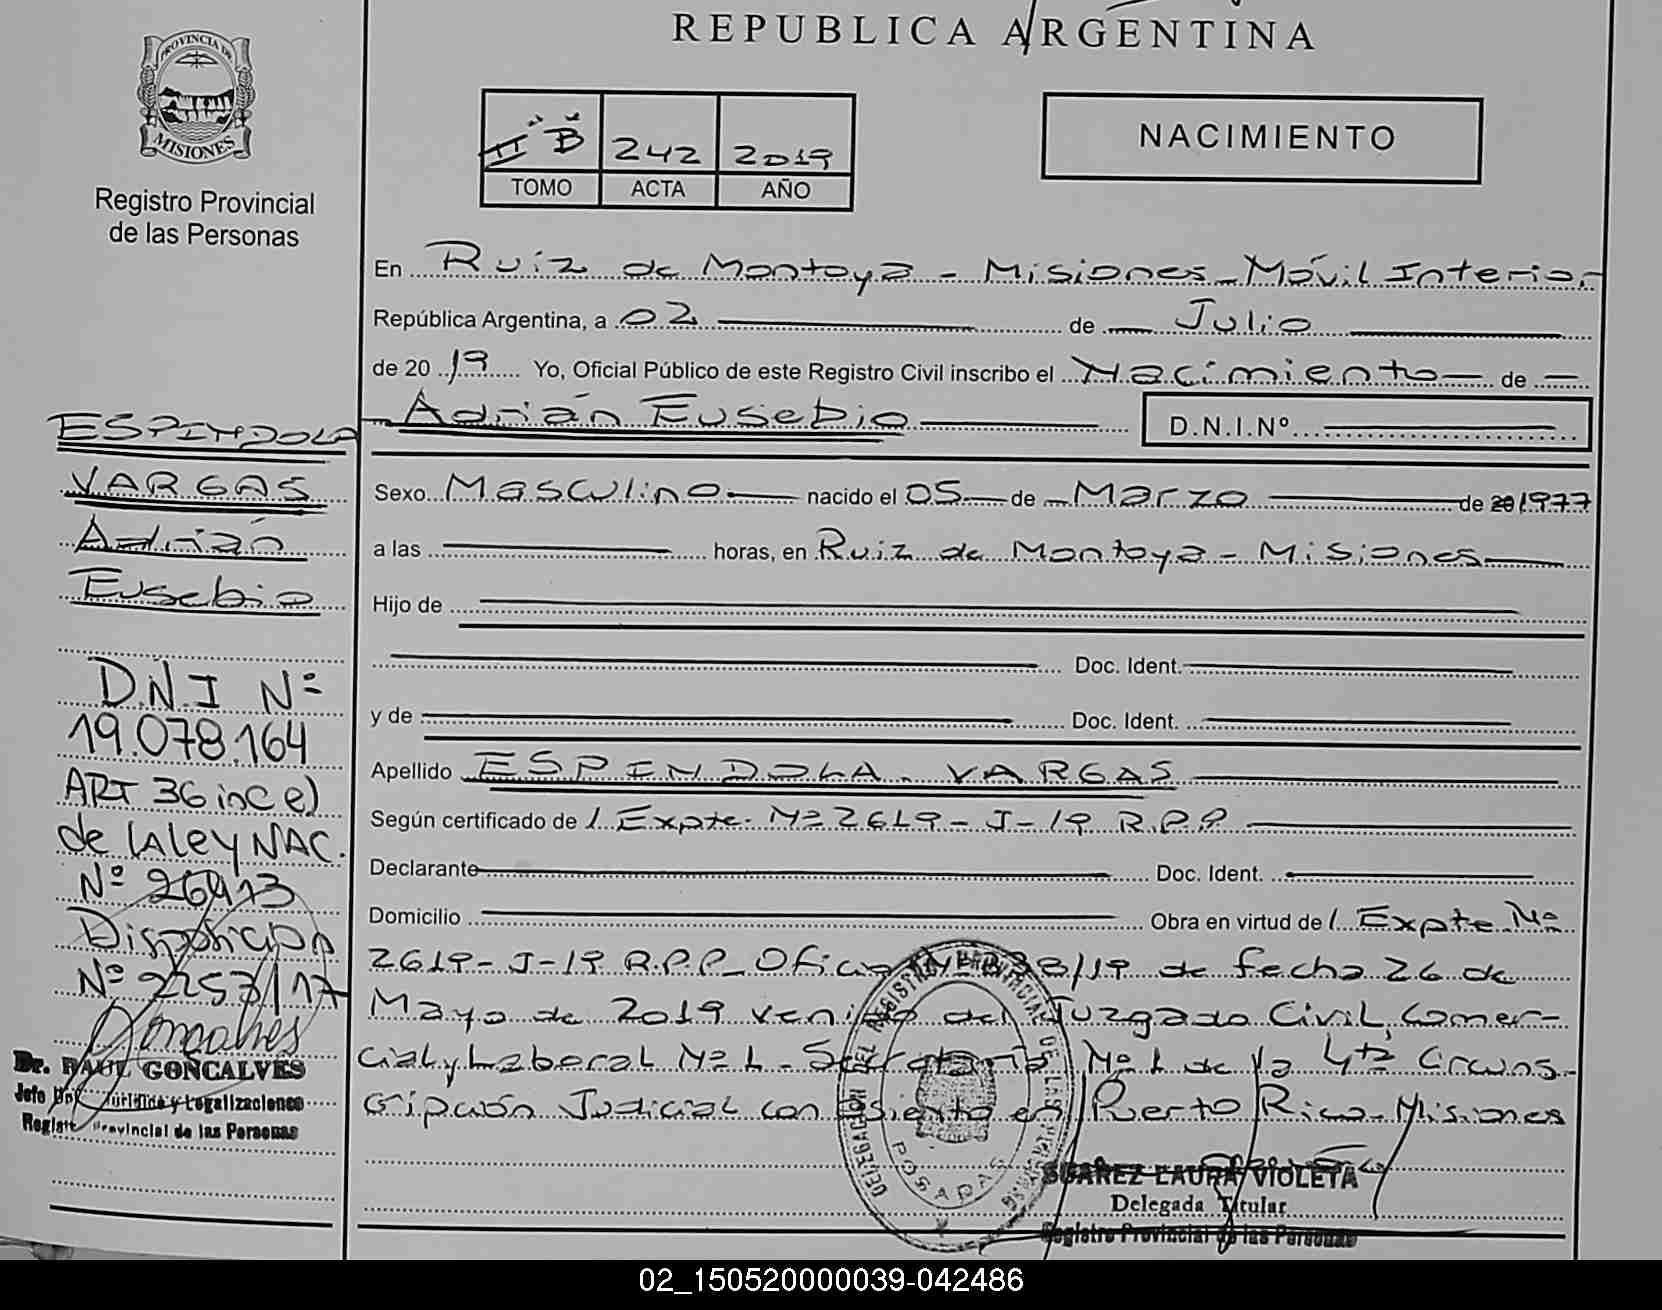 REPUBLICA ARGENTINA
PROVINCIA DE
MISIONES
Registro Provincial
de las Personas
II "B" 242 2019
TOMO ACTA AÑO
NACIMIENTO
En Ruiz de Montoya - Misiones - Móvil Interior
República Argentina, a 02 de Julio
de 2019 Yo, Oficial Público de este Registro Civil inscribo el Nacimiento de
Adrián Eusebio D.N.I.Nº
Sexo Masculino nacido el 05 de Marzo de 20 1977
a las horas, en Ruiz de Montoya - Misiones
Hijo de
Doc. Ident.
y de Doc. Ident.
Apellido ESPINDOLA VARGAS
Según certificado de / Expte. Nº 2619-J-19 R.P.P
Declarante Doc. Ident.
Domicilio Obra en virtud de / Expte Nº
2619-J-19 R.P.P_ Oficio /19 de fecha 26 de
Mayo de 2019 venido del Juzgado Civil, Comer-
cial y Laboral Nº 1 - Secretaría Nº 1 de la 4ta Circuns-
cripción Judicial con asiento en Puerto Rico - Misiones
ESPINDOLA
VARGAS
Adrián
Eusebio
D.N.I Nº
19.078.164
ART 36 inc e)
de la ley NAC.
Nº 26413
Disposición
Nº 2253/17
Goncalves
Dr. RAUL GONCALVES
Jefe Jurídica y Legalizaciones
Registro Provincial de las Personas
DELEGACION DEL REGISTRO PROVINCIAL DE LAS PERSONAS
POSADAS
SUAREZ LAURA VIOLETA
Delegada Titular
Registro Provincial de las Personas
02_150520000039-042486